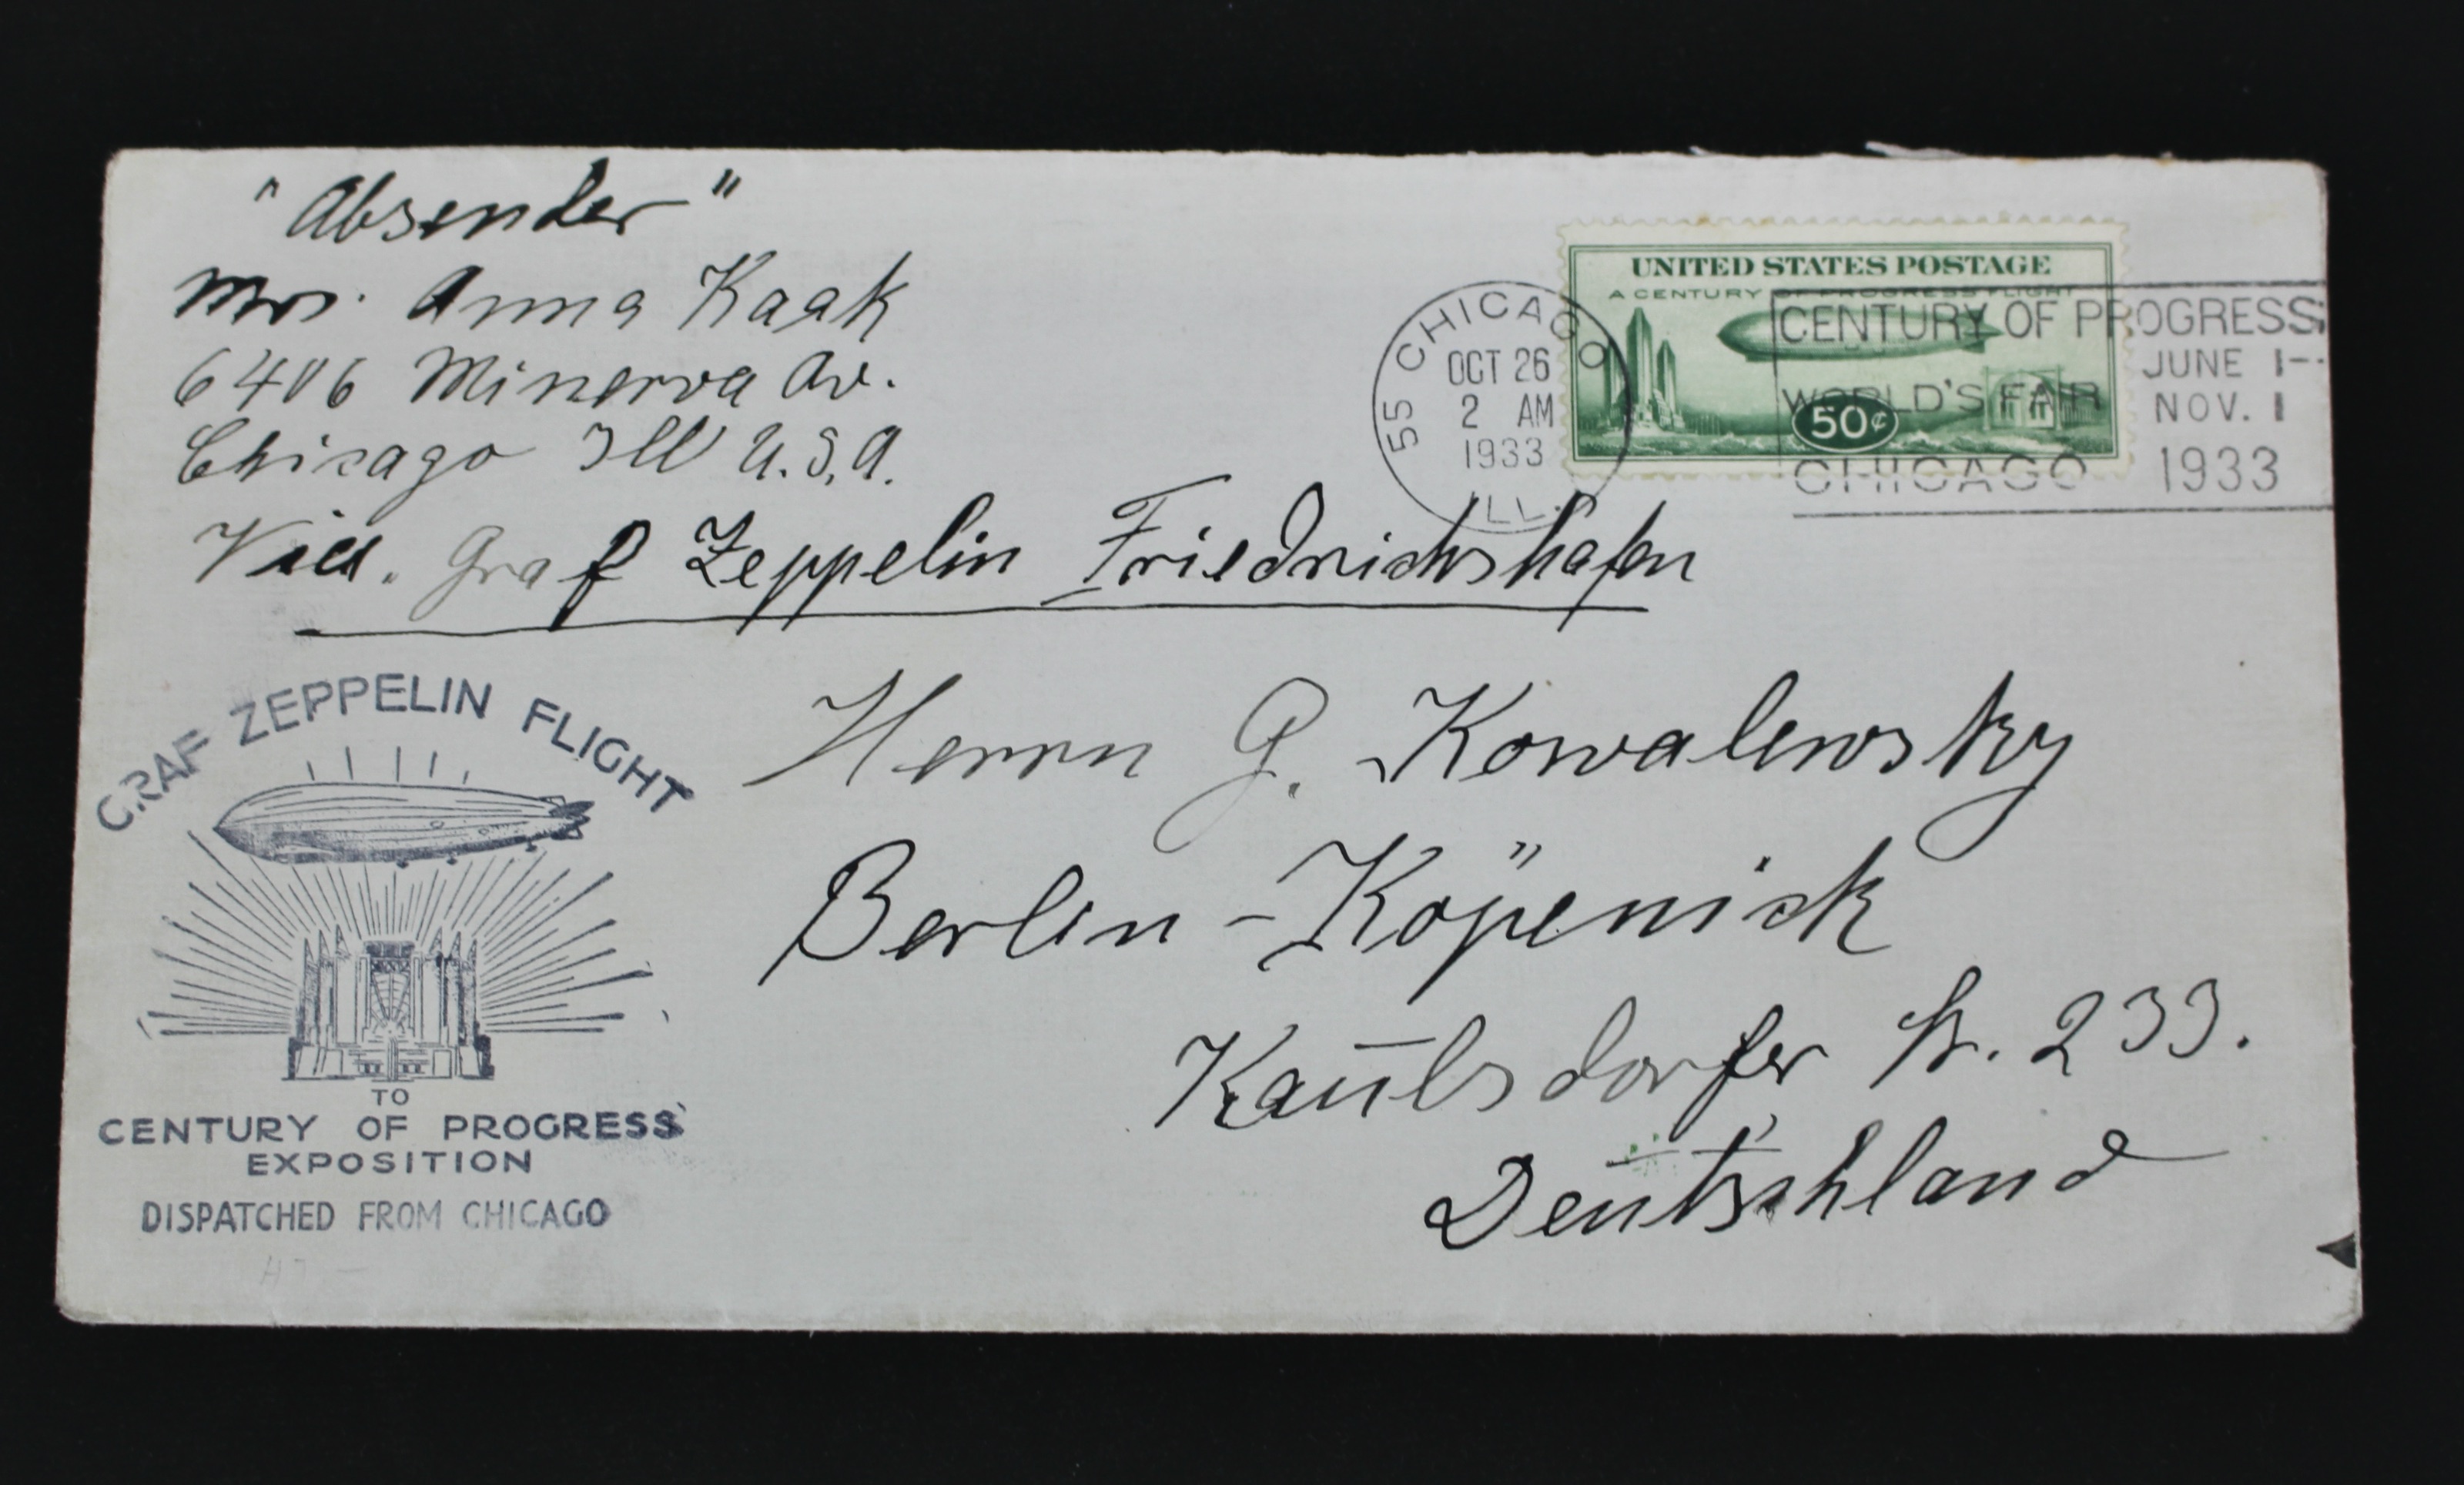 "Absender"
Mrs. Anna Kaak
6406 Minerva Av.
Chicago Ill U.S.A.
Via. Graf Zeppelin Friedrichshafen
UNITED STATES POSTAGE
A CENTURY OF PROGRESS FLIGHT
50¢
55 CHICAGO
OCT 26
2 AM
1933
ILL.
CENTURY OF PROGRESS
JUNE 1-
WORLD'S FAIR
NOV. 1
CHICAGO 1933
GRAF ZEPPELIN FLIGHT
TO
CENTURY OF PROGRESS
EXPOSITION
DISPATCHED FROM CHICAGO
Herrn G. Kowalewsky
Berlin-Köpenick
Kaulsdorfer Str. 233.
Deutschland